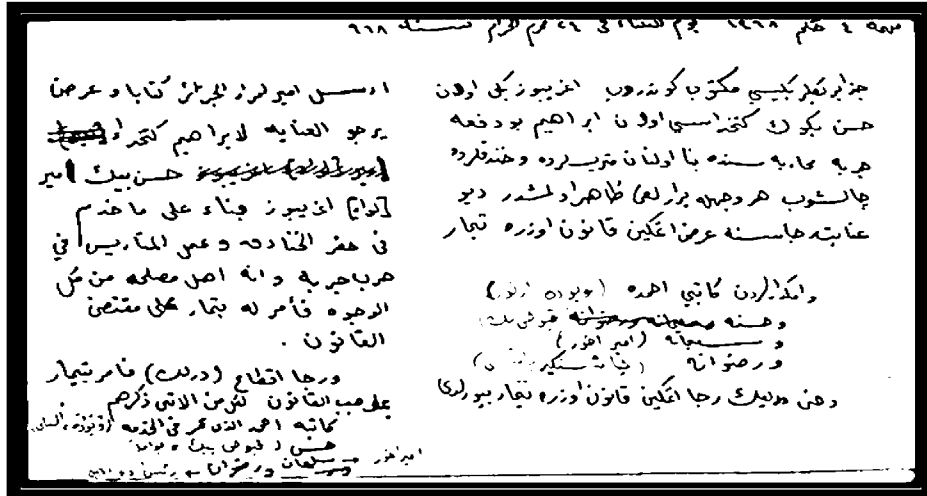 مهمة ٤ حكم ١٤٦٨ يوم الثلاثاء فى ٢٤ محرم الحرام سنة ٩٦٨
جزاير بكلربكيسى مكتوب كوندروب اغريبوز بكى اولان
حسن بكوك كتخداسى اولان ابراهيم بو دفعه
جربه محاربه سنده بنا اولنان متريسلرده وخندقلرده
چالشوب هر وجهله يرارلغى ظاهر اولمشدر ديو
عنايت رجاسنه عرض اتمكين قانون اوزره تيمار
كاتبى احمده
وحسنه قبوجى
و (امير اخور)
ورضوانه
دخى رجا اتمكين قانون اوزره تيمار بيورلدى
ارسل امير امراء الجزائر كتابا وعرضا
يرجو العناية لابراهيم كتخدا
حسن بيك [امير
لواء] اغريبوز بناء على ما خدم
فى حفر الخنادق وعمل المتاريس فى
حرب جربة وانه اهل مصلحة من كل
الوجوه فأمر له بتمار على مقتضى
القانون .
ورجا اقطاع (درلك) فأمر بتيمار
على حسب القانون لكل من الاتى ذكرهم
كاتبه احمد فى الخدمة
حسن
امير اخور سلطان ورضوان